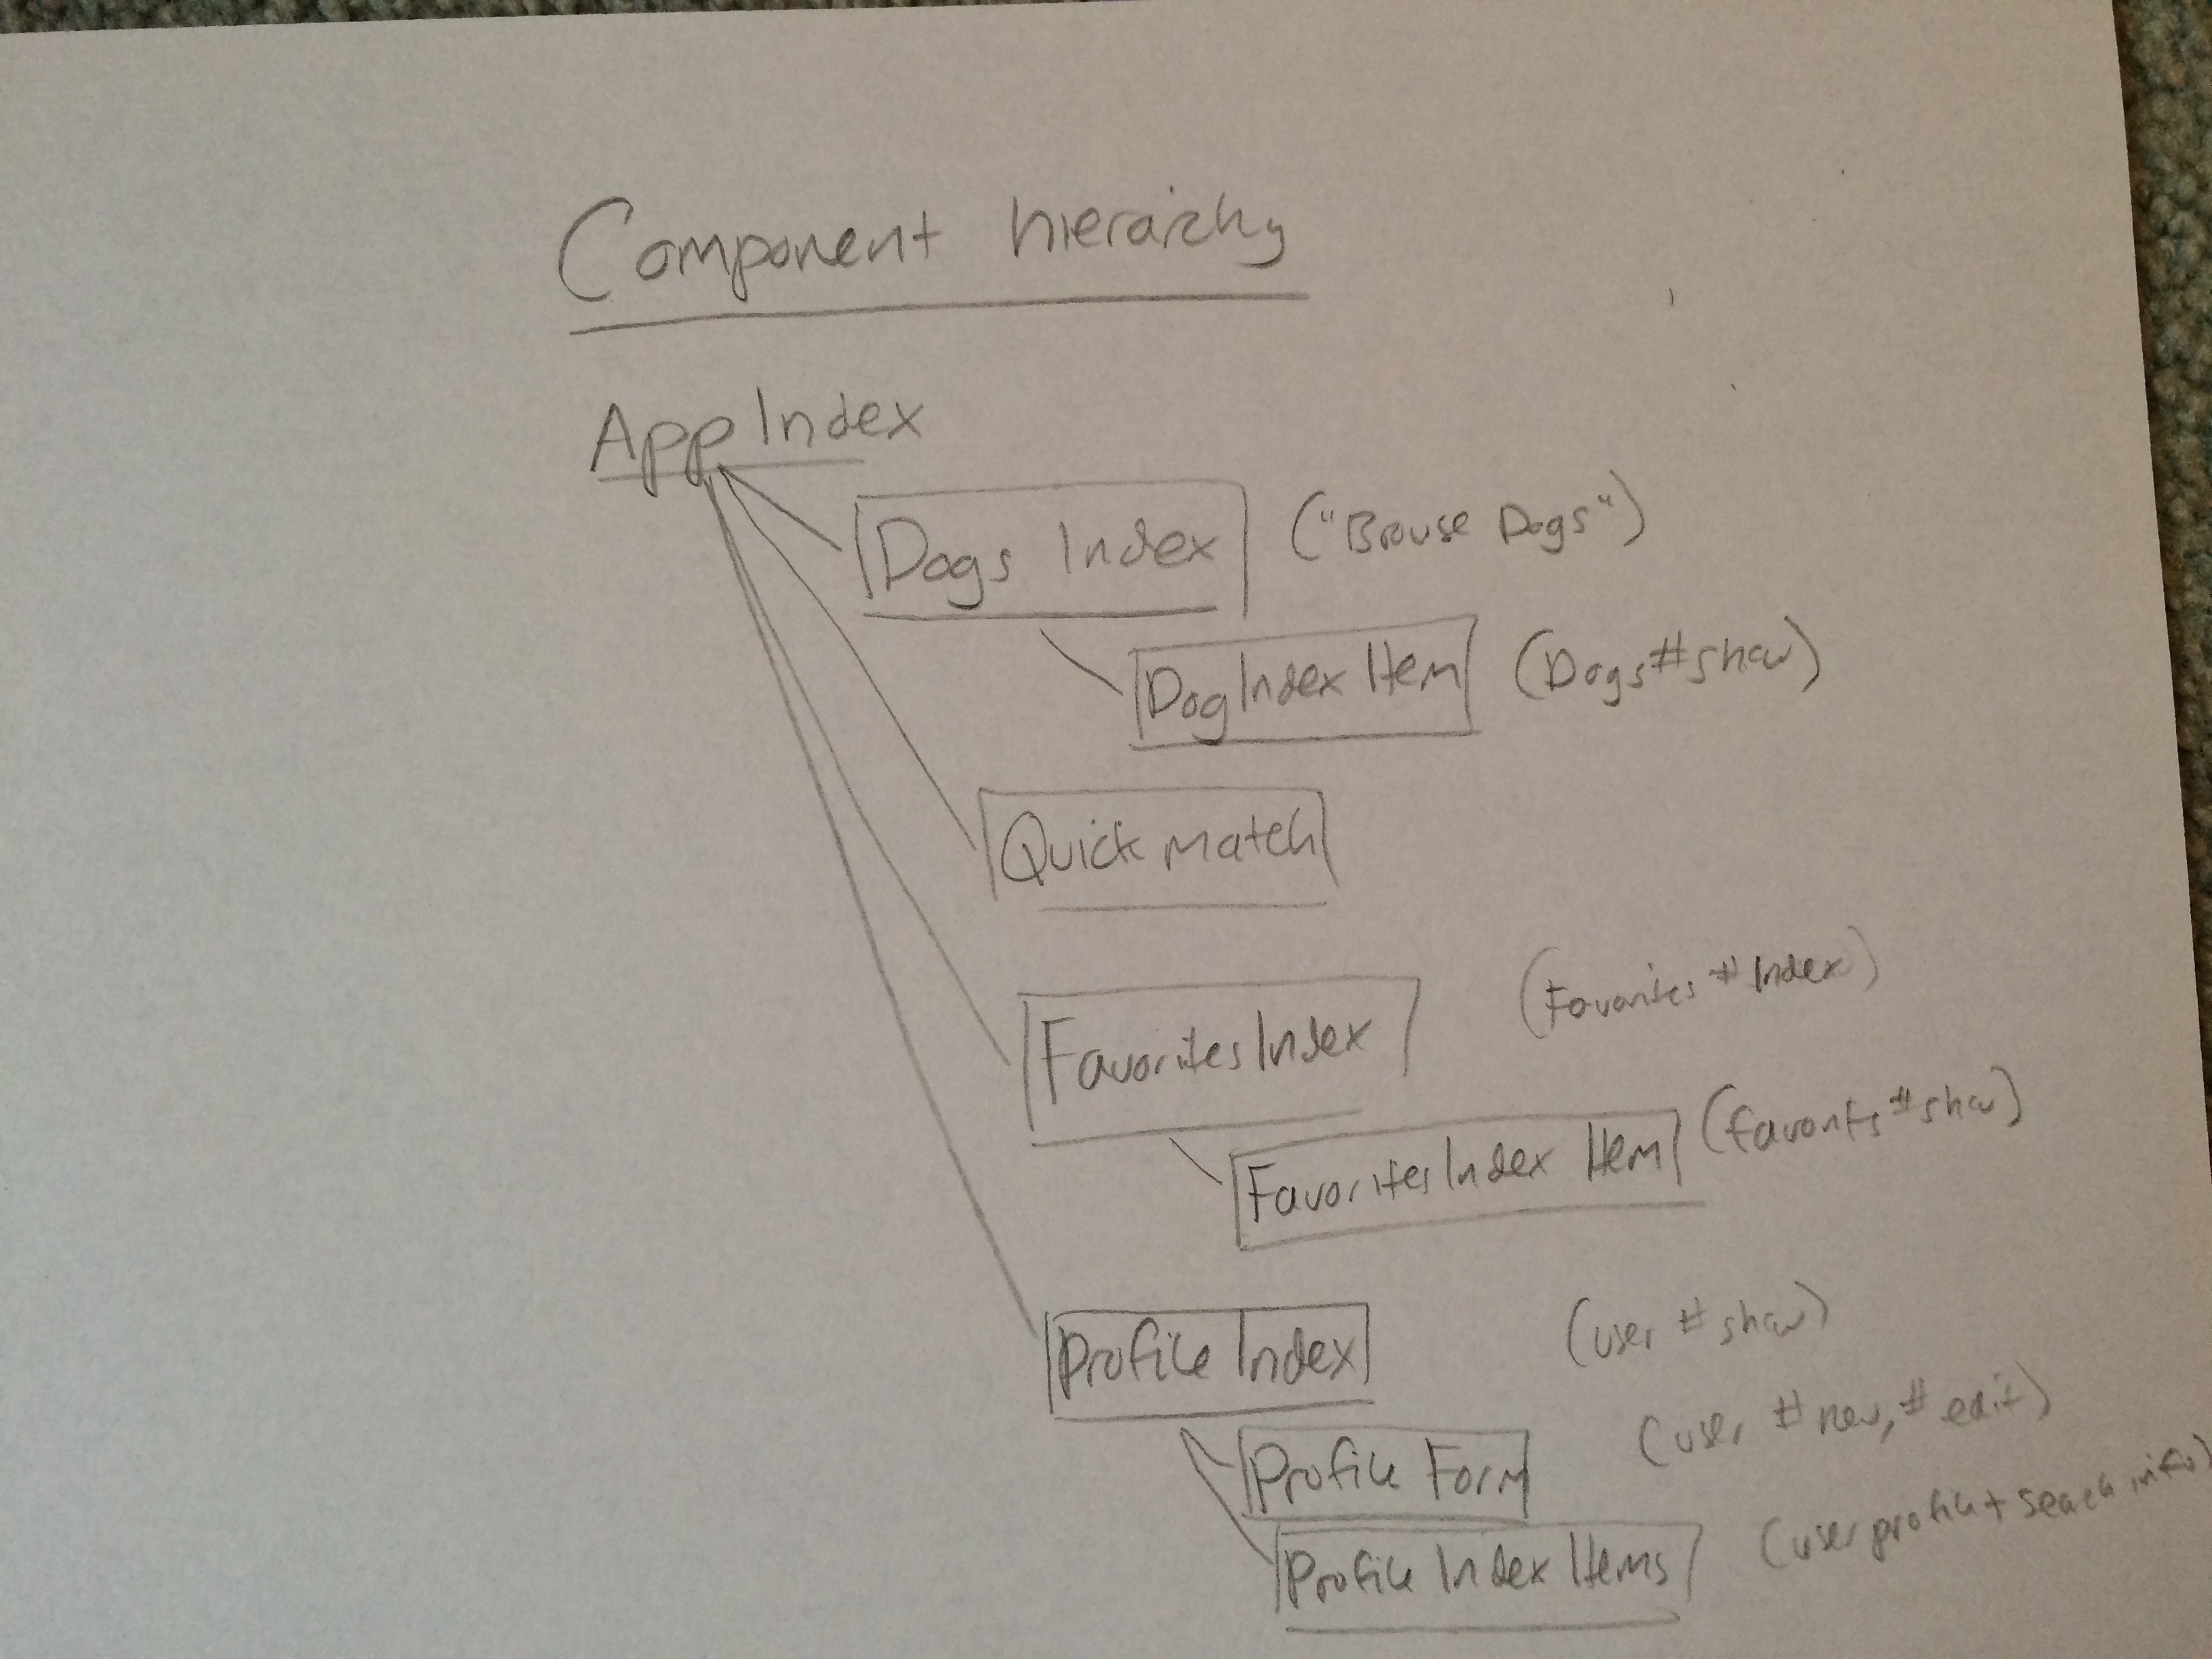 Component hierarchy
App Index
Dogs Index ("Browse Dogs")
DogIndex Item (Dogs#show)
Quick match
FavoritesIndex (Favorites #Index)
FavoritesIndex Item (favorites#show)
Profile Index (user #show)
Profile Form (user #new, #edit)
Profile Index Items (user profile + search info)